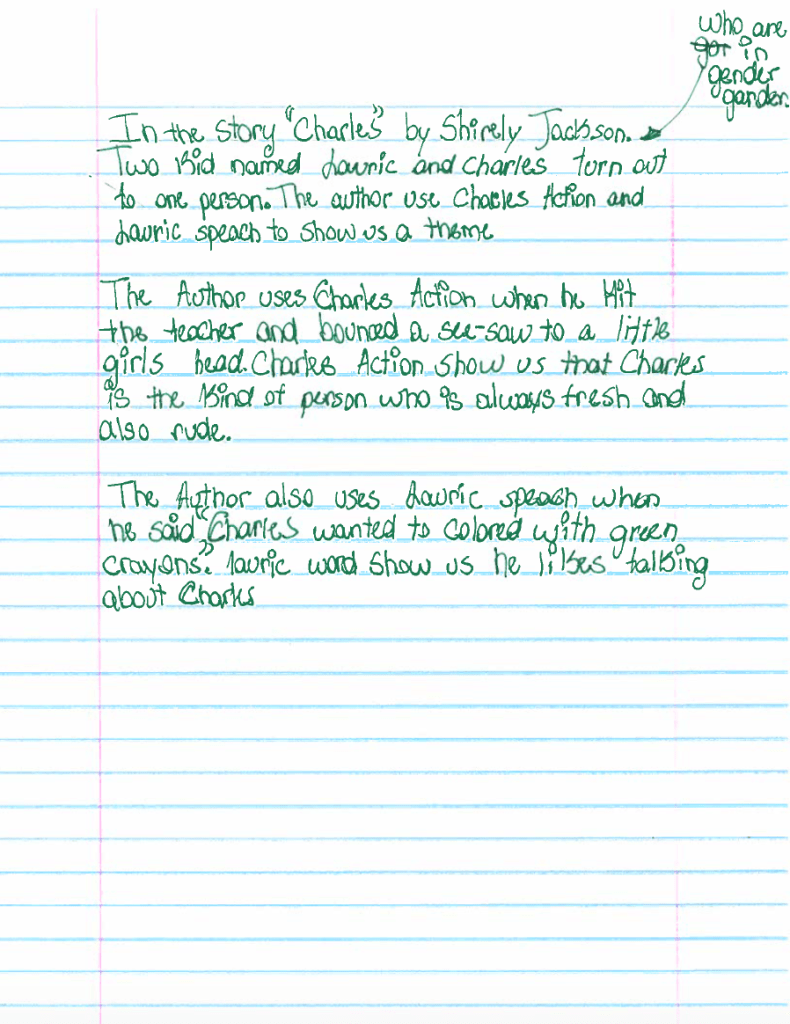 who are
in
gender
gander
In the story "Charles" by Shirely Jackson.
Two kid named Lauric and Charles turn out
to one person. The author use Charles Action and
Lauric speach to show us a theme
The Author uses Charles Action when he Hit
the teacher and bounced a see-saw to a little
girls head. Charles Action show us that Charles
is the kind of person who is always fresh and
also rude.
The Author also uses Lauric speach when
he said "Charles wanted to colored with green
crayons." lauric word show us he likes talking
about Charles